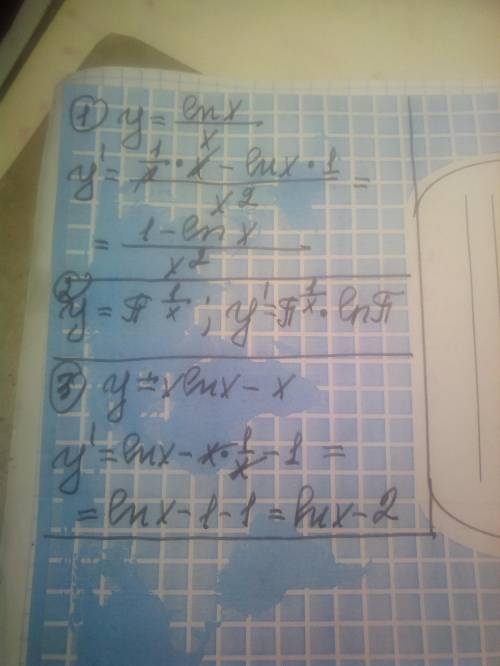 ① y = lnx/x
y' = (1/x · x - lnx · 1)/x² =
= (1 - lnx)/x²
② y = π^(1/x); y' = π^(1/x) · lnπ
③ y = xlnx - x
y' = lnx - x · 1/x - 1 =
= lnx - 1 - 1 = lnx - 2